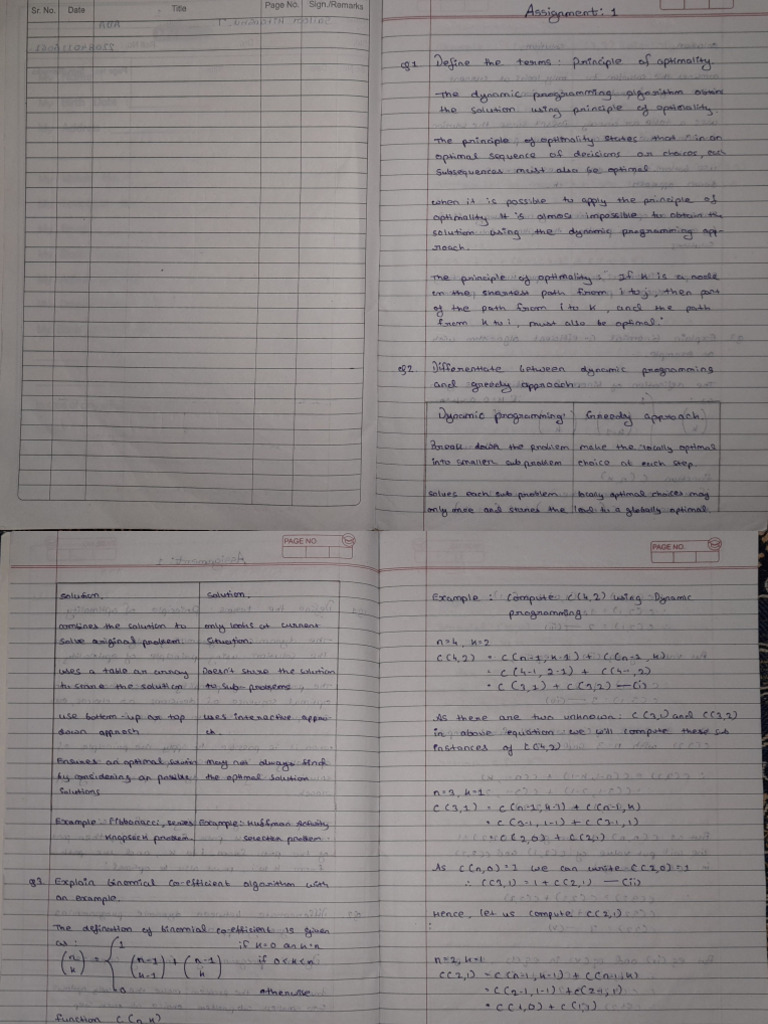 Sr. No. Date Title Page No. Sign./Remarks
Assignment: 1
Q1 Define the terms: principle of optimality.
The dynamic programming algorithm obtain
the solution using principle of optimality.
The principle of optimality states that "in an
optimal sequence of decisions or choices, each
subsequences must also be optimal
when it is possible to apply the principle of
optimality it is almost impossible to obtain the
solution using the dynamic programming app-
roach.
The principle of optimality: "If k is a node
on the shortest path from i to j, then part
of the path from i to k, and the path
from k to i, must also be optimal."
Q2. Differentiate between dynamic programming
and greedy approach
Dynamic programming Greedy approach
Break down the problem make the locally optimal
into smaller sub problem choice at each step.
solves each sub problem locally optimal choices may
only once and stores the lead to a globally optimal
PAGE NO.
solution. solution.
combines the solution to only looks at current
solve original problem. situation.
uses a table or array Doesn't store the solution
to store the solution to sub-problems
use bottom-up or top uses interactive approa-
down approch ch.
Ensures an optimal may not always find
by considering all possible the optimal solution
solutions
Example: Fibonacci, Example: Huffman Activity
knapsack problem. selection problem.
Q3 Explain binomial co-efficient algorithm with
an example.
The definition of binomial co-efficient is given
as:
(n k) = { 1 if k=0 or k=n
(n-1 k-1) + (n-1 k) if 0<k<n
0 otherwise.
function C(n,k)
PAGE NO.
Example: compute C(4,2) using Dynamic
programming
n=4, k=2
C(4,2) = C(n-1, k-1) + C(n-1, k)
= C(4-1, 2-1) + C(4-1, 2)
= C(3,1) + C(3,2) —(i)
As there are two unknown: C(3,1) and C(3,2)
in above equation we will compute these sub
instances of C(4,2)
n=3, k=1
C(3,1) = C(n-1, k-1) + C(n-1, k)
= C(3-1, 1-1) + C(3-1, 1)
= C(2,0) + C(2,1)
As C(n,0)=1 we can write C(2,0)=1
∴ C(3,1) = 1 + C(2,1) —(ii)
Hence, let us compute C(2,1)
n=2, k=1
C(2,1) = C(n-1, k-1) + C(n-1, k)
= C(2-1, 1-1) + C(2-1, 1)
= C(1,0) + C(1,1)